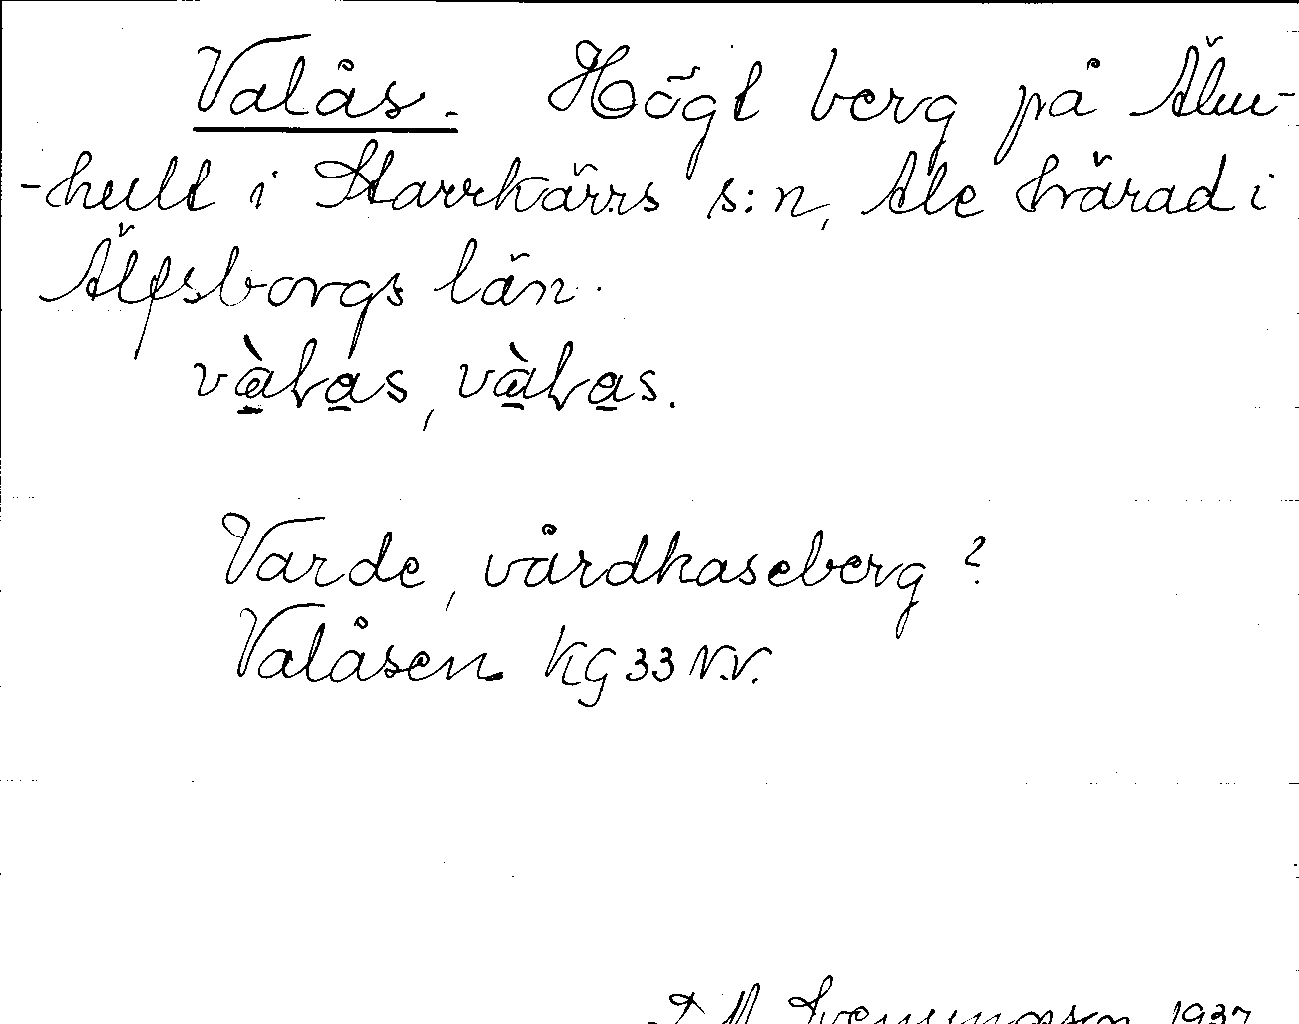 Valås. Högt berg på Älm-
-hult i Starrkärrs s:n, Ale härad i
Älfsborgs län.
vàlas, vàlas.
Varde, vårdkaseberg?
Valåsen KG 33 N.V.
1937